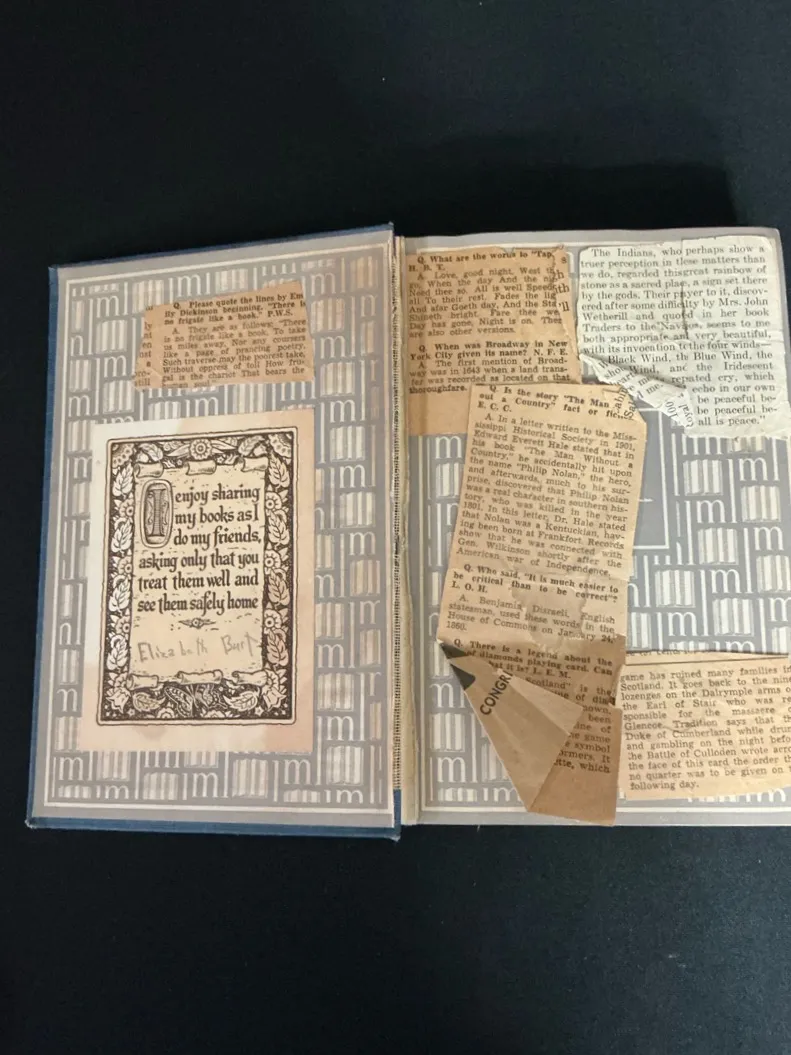 Q. Please quote the lines by Em
ily Dickinson beginning, "There is
no frigate like a book." P.W.S.
A. They are as follows: "There
is no frigate like a book, To take
us miles away. Nor any coursers
like a page of prancing poetry.
Such traverse may the poorest take,
Without oppress of toll How fru-
gal is the chariot That bears the
still
I enjoy sharing
my books as I
do my friends,
asking only that you
treat them well and
see them safely home
Elizabeth Burt
Q. What are the words to "Tap
H. B. T.
A. Love, good night, Must th
go, When the day And the nig
Need thee so. All is well Speed
all To their rest. Fades the lig
And afar Goeth day, And the Sta
Shineth bright, Fare thee we
Day has gone, Night is on. Ther
are also other versions.
Q. When was Broadway in New
York City given its name? N. F. E.
A. The first mention of Broad-
way was in 1643 when a land trans-
fer was recorded as located on that
thoroughfare.
The Indians, who perhaps show a
truer perception in these matters than
we do, regarded this great rainbow of
stone as a sacred place, a sign set there
by the gods. Their prayer to it, discov-
ered after some difficulty by Mrs. John
Wetherill and quoted in her book
Traders to the Navajos, seems to me
both appropriate and very beautiful,
with its invocation to the four winds—
Black Wind, the Blue Wind, the
Wind, and the Iridescent
repeated cry, which
echo in our own
be peaceful be-
be peaceful be-
all is peace."
Q. Is the story "The Man
out a Country" fact or fic
E. C. C.
A. In a letter written to the Miss-
issippi Historical Society in 1901,
Edward Everett Hale stated that in
his book "The Man Without a
Country," he accidentally hit upon
the name "Philip Nolan," the hero,
and afterwards, much to his sur-
prise, discovered that Philip Nolan
was a real character in southern his-
tory, who was killed in the year
1801. In this letter, Dr. Hale stated
that Nolan was a Kentuckian, hav-
ing been born at Frankfort. Records
show that he was connected with
Gen. Wilkinson shortly after the
American war of Independence.
Q. Who said, "It is much easier to
be critical than to be correct"?
L. O. H.
A. Benjamin Disraeli, English
statesman, used these words in the
House of Commons on January 24,
1860.
Q. There is a legend about the
of diamonds playing card. Can
what it is? L. E. M.
Scotland" is the
CONGR
been
game
symbol
which
game has ruined many families in
Scotland. It goes back to the nine
lozenges on the Dalrymple arms o
the Earl of Stair who was re
sponsible for the massacre o
Glencoe. Tradition says that th
Duke of Cumberland while drun
and gambling on the night befo
the Battle of Culloden wrote acro
the face of this card the order th
no quarter was to be given on t
following day.